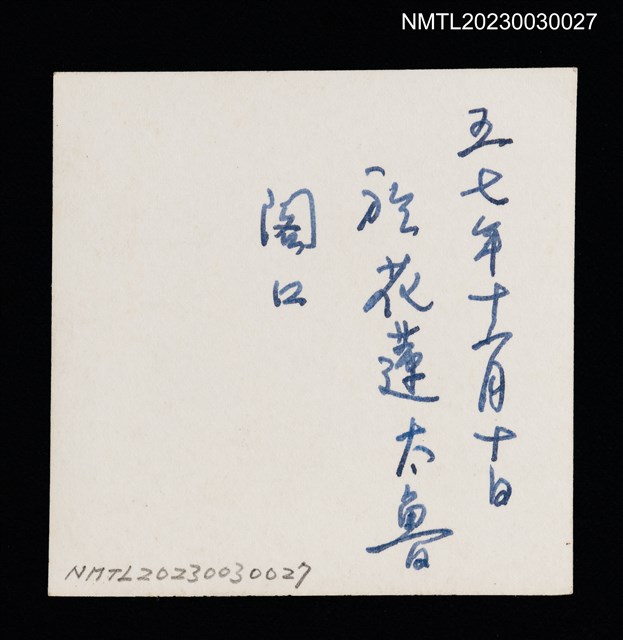 NMTL20230030027
五七年十二月十日
於花蓮太魯
閣口
NMTL20230030027